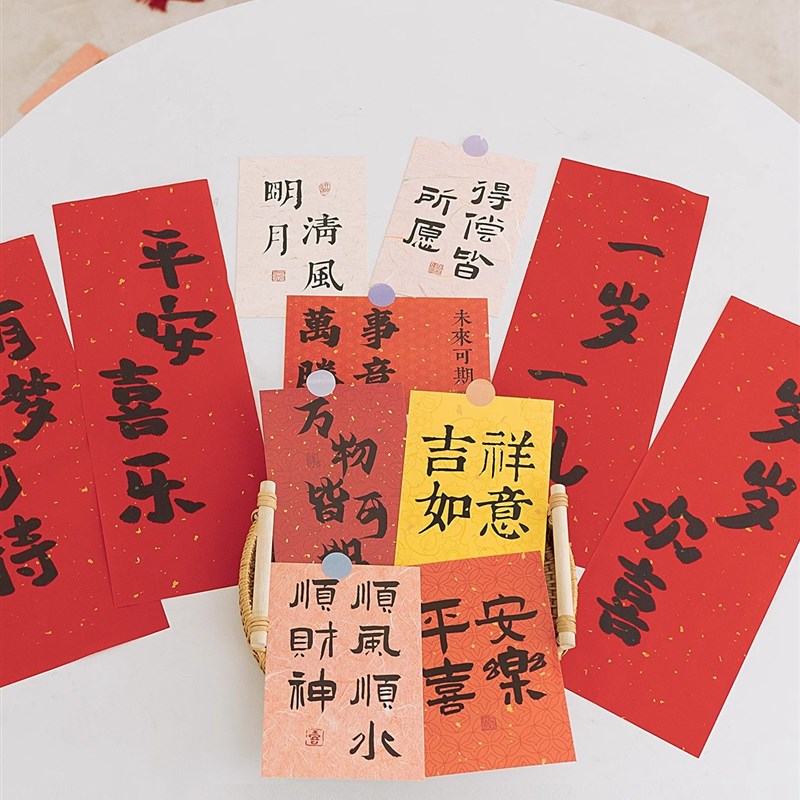 有梦可待
平安喜乐
清風
明月
得偿皆
所愿
未來可期
事意
萬勝
万物皆可期
吉祥
如意
順風順水
順財神
平安
喜樂
一岁一礼
岁岁
欢喜